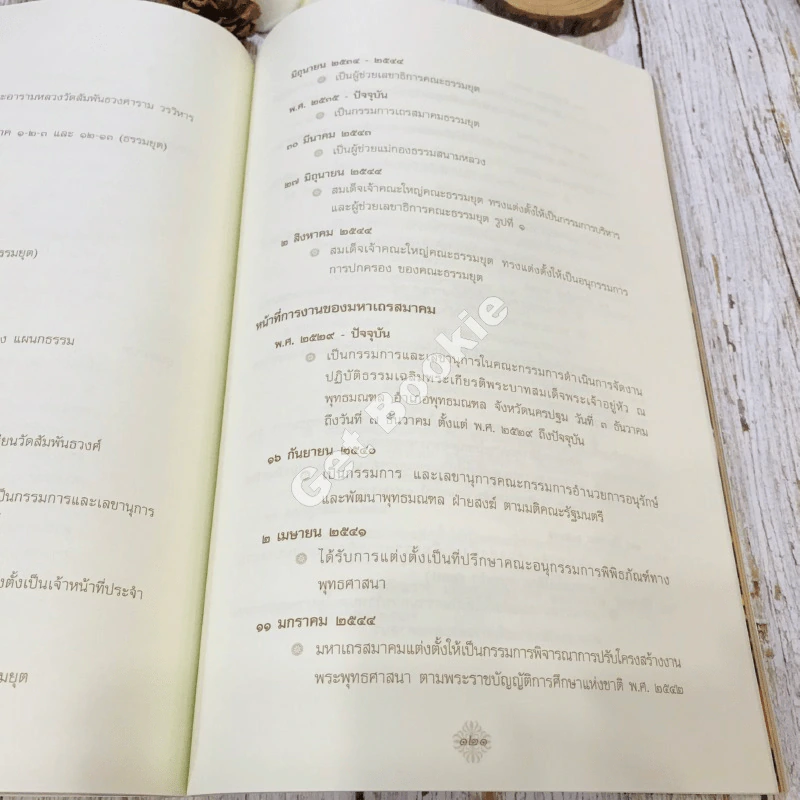 ะอารามหลวงวัดสัมพันธวงศาราม วรวิหาร
าค ๑-๒-๓ และ ๑๒-๑๓ (ธรรมยุต)
ธรรมยุต)
ง แผนกธรรม
ยนวัดสัมพันธวงศ์
ป็นกรรมการและเลขานุการ
งตั้งเป็นเจ้าหน้าที่ประจำ
มยุต
มิถุนายน ๒๕๓๔ - ๒๕๔๔
เป็นผู้ช่วยเลขาธิการคณะธรรมยุต
พ.ศ. ๒๕๓๕ - ปัจจุบัน
เป็นกรรมการเถรสมาคมธรรมยุต
๓๐ มีนาคม ๒๕๔๓
เป็นผู้ช่วยแม่กองธรรมสนามหลวง
๒๗ มิถุนายน ๒๕๔๔
สมเด็จเจ้าคณะใหญ่คณะธรรมยุต ทรงแต่งตั้งให้เป็นกรรมการบริหาร
และผู้ช่วยเลขาธิการคณะธรรมยุต รูปที่ ๑
๒ สิงหาคม ๒๕๔๔
สมเด็จเจ้าคณะใหญ่คณะธรรมยุต ทรงแต่งตั้งให้เป็นอนุกรรมการ
การปกครอง ของคณะธรรมยุต
หน้าที่การงานของมหาเถรสมาคม
พ.ศ. ๒๕๒๙ - ปัจจุบัน
เป็นกรรมการและเลขานุการในคณะกรรมการดำเนินการจัดงาน
ปฏิบัติธรรมเฉลิมพระเกียรติพระบาทสมเด็จพระเจ้าอยู่หัว ณ
พุทธมณฑล อำเภอพุทธมณฑล จังหวัดนครปฐม วันที่ ๓ ธันวาคม
ถึงวันที่ ๗ ธันวาคม ตั้งแต่ พ.ศ. ๒๕๒๙ ถึงปัจจุบัน
๑๖ กันยายน ๒๕๔๐
เป็นกรรมการ และเลขานุการคณะกรรมการอำนวยการอนุรักษ์
และพัฒนาพุทธมณฑล ฝ่ายสงฆ์ ตามมติคณะรัฐมนตรี
๒ เมษายน ๒๕๔๑
ได้รับการแต่งตั้งเป็นที่ปรึกษาคณะอนุกรรมการพิพิธภัณฑ์ทาง
พุทธศาสนา
๑๑ มกราคม ๒๕๔๔
มหาเถรสมาคมแต่งตั้งให้เป็นกรรมการพิจารณาการปรับโครงสร้างงาน
พระพุทธศาสนา ตามพระราชบัญญัติการศึกษาแห่งชาติ พ.ศ. ๒๕๔๒
๑๒๑
Get Bookie